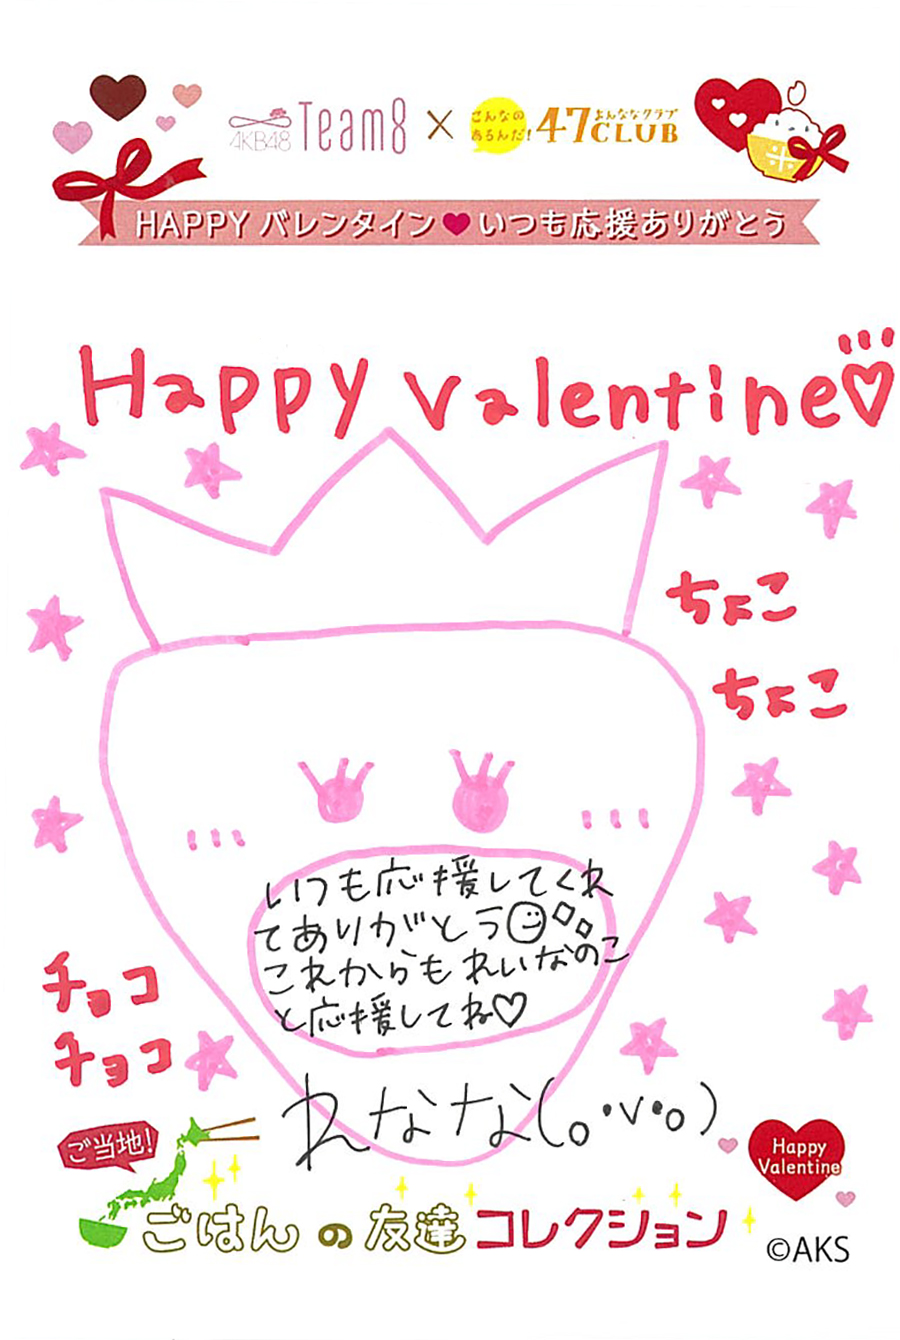 AKB48 Team8 × こんなの あるんだ! 47CLUB よんななクラブ
HAPPY バレンタイン♥いつも応援ありがとう
Happy Valentine♡
ちょこ
ちょこ
いつも応援してくれ
てありがとう☺◇◇
これからもれいなのこ
と応援してね♡
チョコ
チョコ
れなな(o・v・o)
ご当地!
Happy
Valentine
ごはんの友達コレクション
©AKS